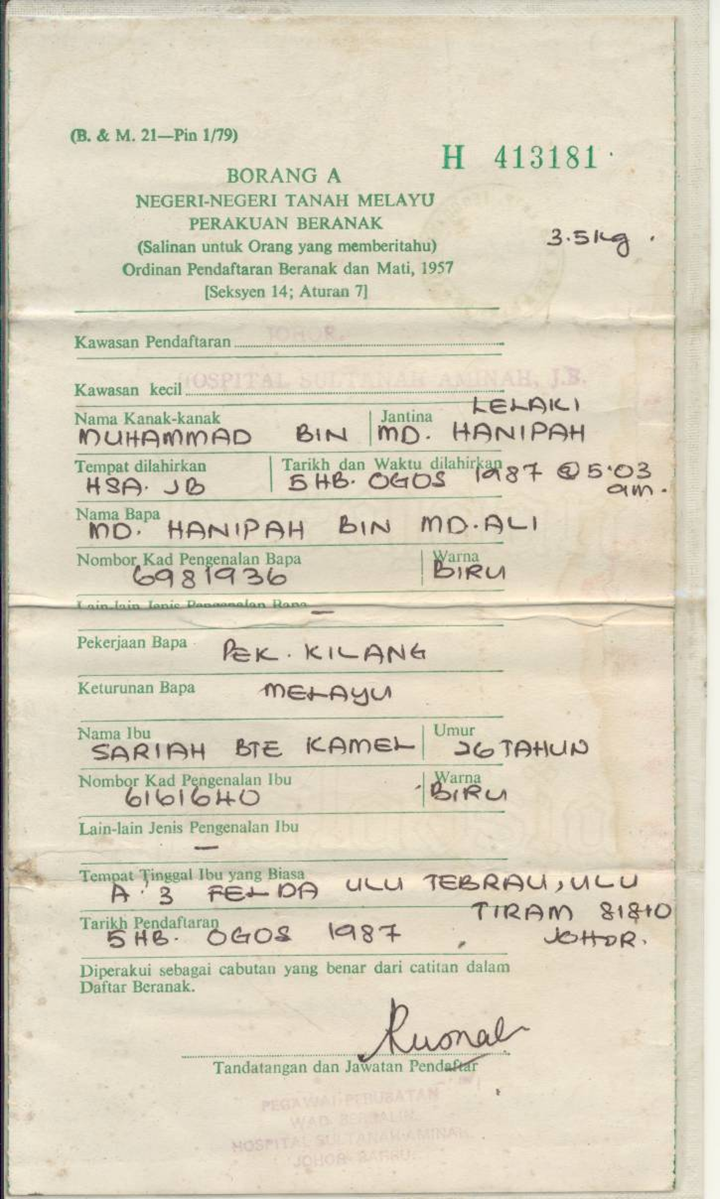 (B. & M. 21—Pin 1/79)
H 413181
BORANG A
NEGERI-NEGERI TANAH MELAYU
PERAKUAN BERANAK
(Salinan untuk Orang yang memberitahu)
3.5kg.
Ordinan Pendaftaran Beranak dan Mati, 1957
[Seksyen 14; Aturan 7]
Kawasan Pendaftaran JOHOR.
Kawasan kecil HOSPITAL SULTANAH AMINAH, J.B.
Nama Kanak-kanak Jantina LELAKI
MUHAMMAD BIN MD. HANIPAH
Tempat dilahirkan Tarikh dan Waktu dilahirkan
HSA. JB 5HB. OGOS 1987 @ 5.03 am.
Nama Bapa
MD. HANIPAH BIN MD. ALI
Nombor Kad Pengenalan Bapa Warna
6981936 BIRU
Lain-lain Jenis Pengenalan Bapa —
Pekerjaan Bapa PEK. KILANG
Keturunan Bapa MELAYU
Nama Ibu Umur
SARIAH BTE KAMEL 26 TAHUN
Nombor Kad Pengenalan Ibu Warna
6161640 BIRU
Lain-lain Jenis Pengenalan Ibu
—
Tempat Tinggal Ibu yang Biasa
A 3 FELDA ULU TEBRAU, ULU
TIRAM 81810
JOHOR.
Tarikh Pendaftaran
5HB. OGOS 1987
Diperakui sebagai cabutan yang benar dari catitan dalam
Daftar Beranak.
Tandatangan dan Jawatan Pendaftar
PEGAWAI PERUBATAN
WAD BERSALIN
HOSPITAL SULTANAH AMINAH
JOHOR BAHRU.